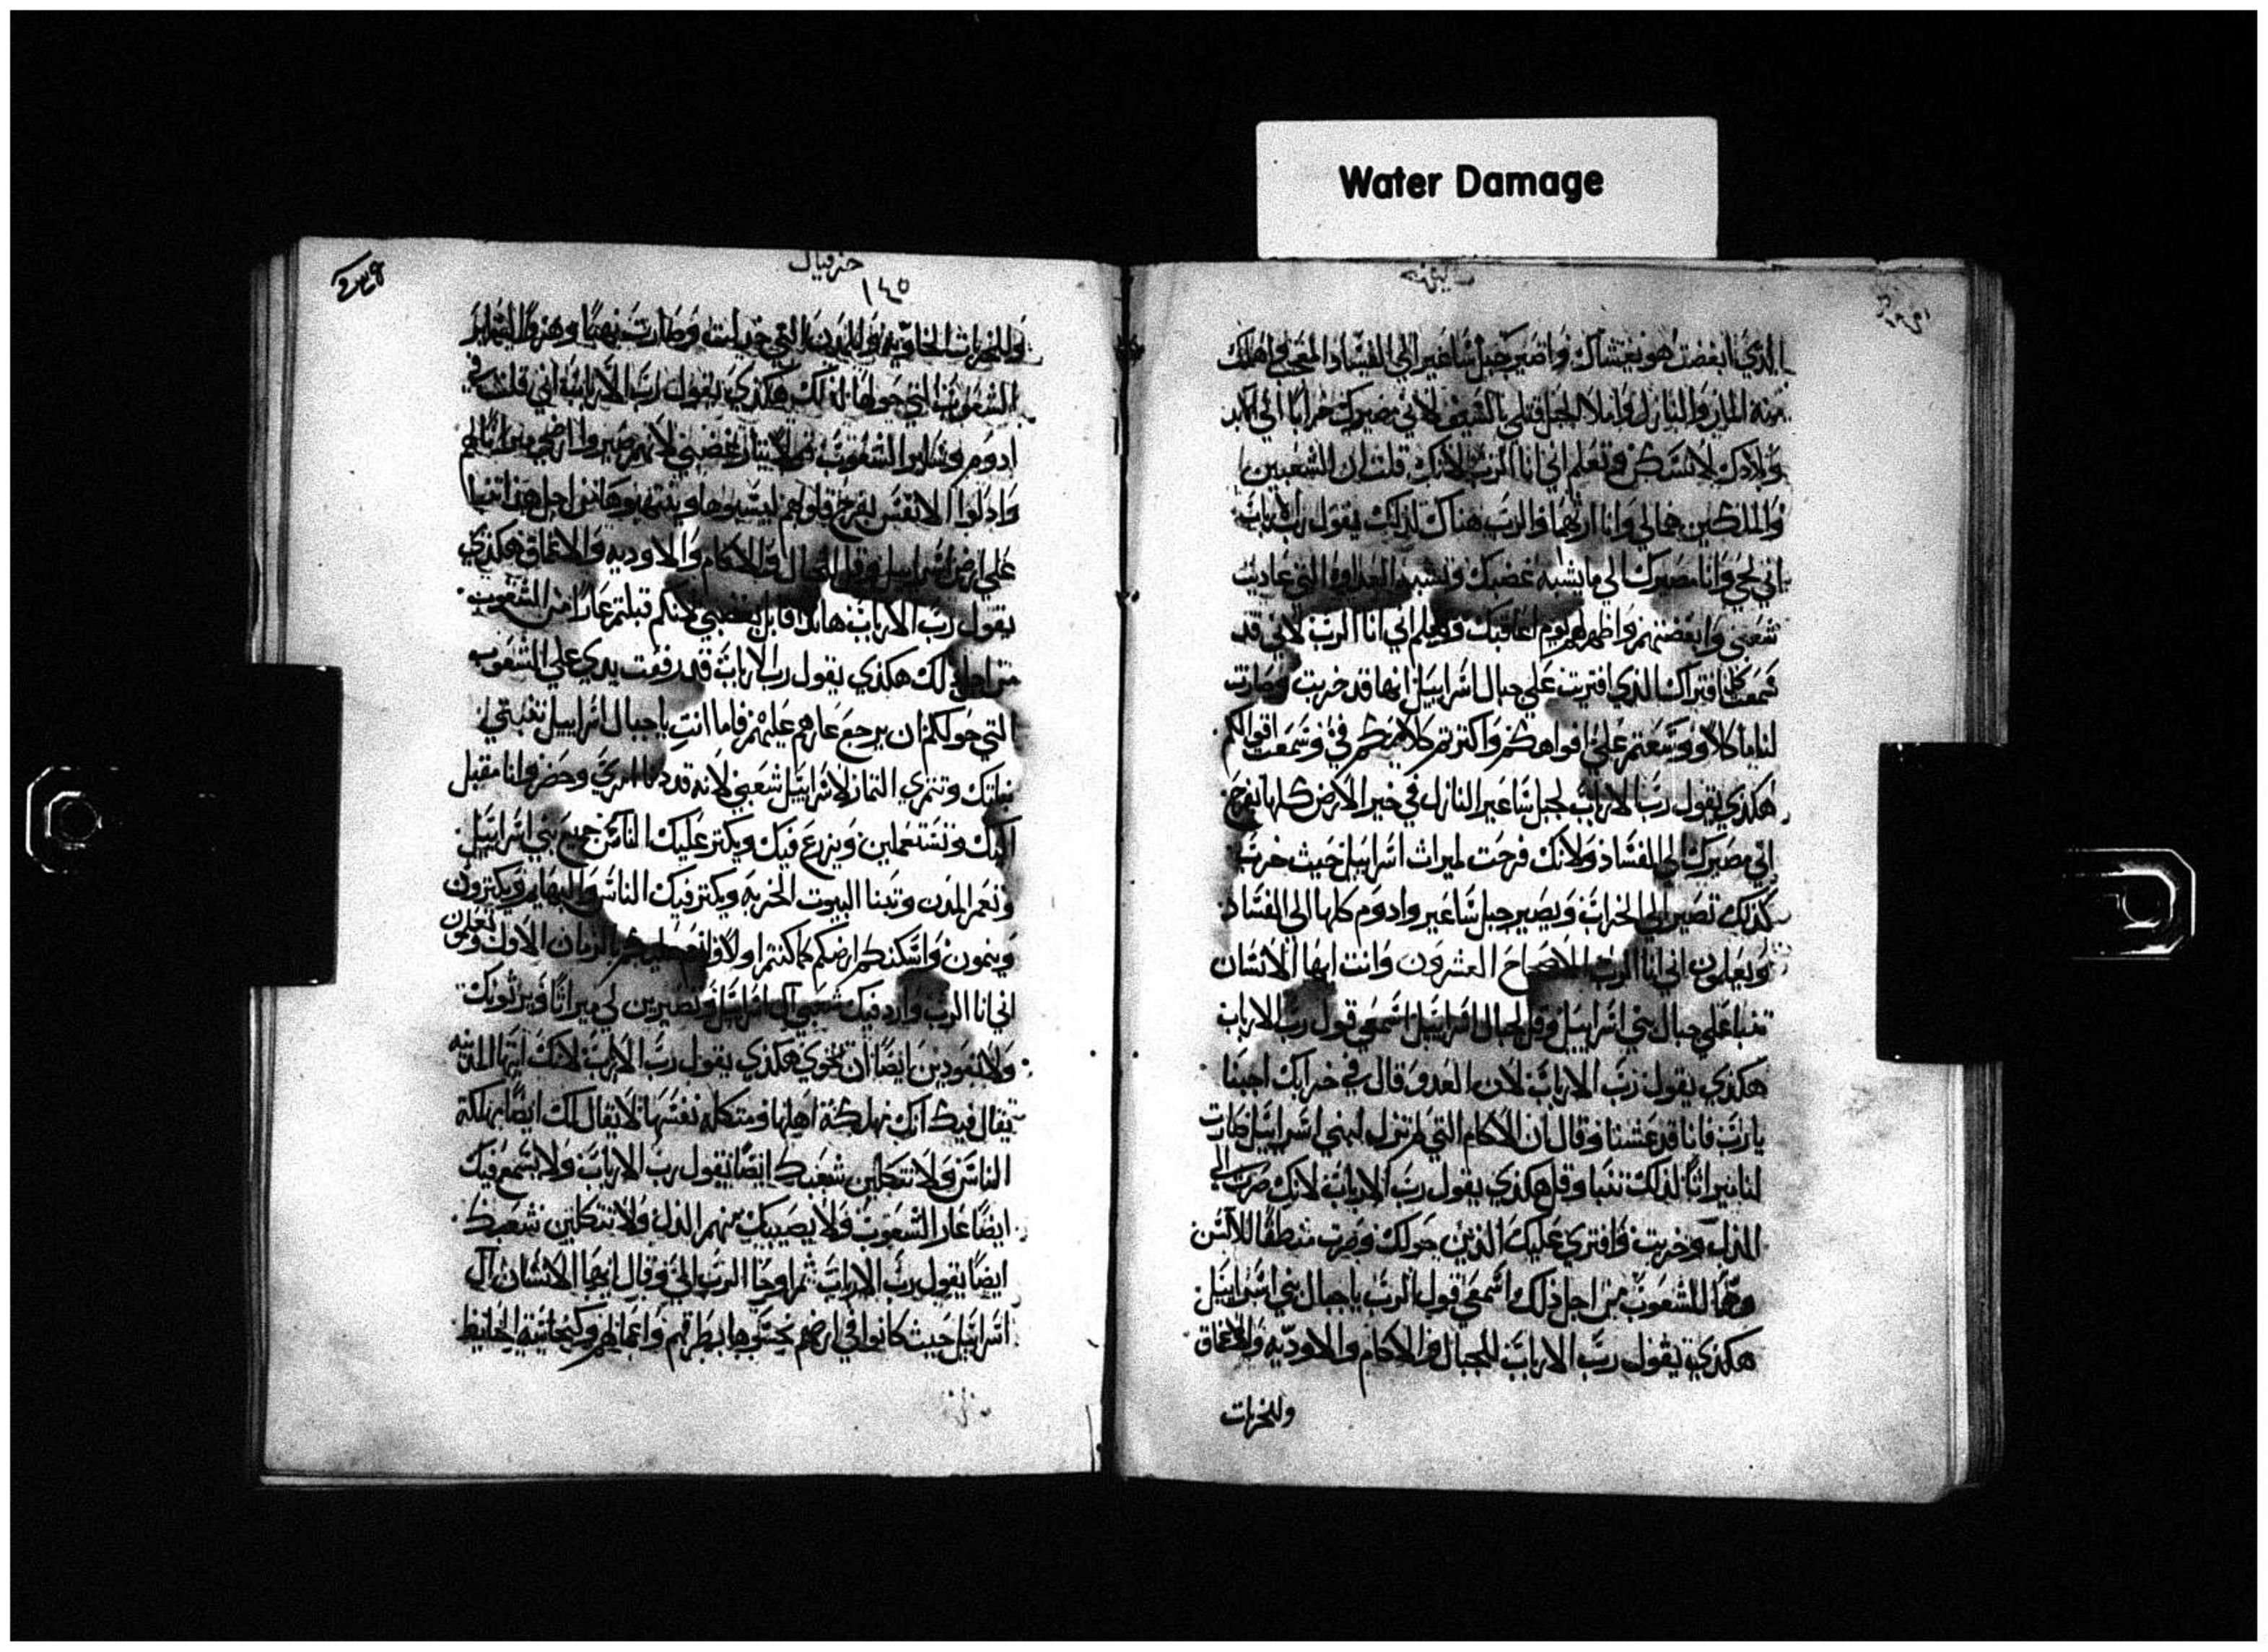 Water Damage
الذي ابغضت هو يغشاك واصير جبل ساعير الى الفساد العجب واهلك
منه المار والنازل واملا الجبل قتلي بالسيف لاني مصيرك خرابا الى الابد
وبلادك لا تسكن وتعلم اني انا الرب لانك قلت ان للشعبين
والملكين هما لي وانا ارثها والرب هناك لذلك يقول رب الارباب
اني لحي وانا مصيرك الى ما يشبه غضبك وتشبه العداوه التي عاديت
شعبي وابغضتهم واظهر لهم يوم اعاقبك وتعلم اني انا الرب لاني قد
سمعت كل افتراك الذي افتريت على جبال اسراييل انها قد خربت وصارت
لنا ماكلا ووسعتم علي افواهكم واكثرتم كلامكم في وسمعت اقوالكم
هكذي يقول رب الارباب لجبل ساعير النازل في خير الارض كلها بفرح
اني مصيرك الى الفساد ولانك فرحت لميراث اسراييل حيث خربت
كذلك تصير الى الخراب ويصير جبل ساعير وادوم كلها الى الفساد
ويعلمون اني انا الرب الاصحاح العشرون وانت ايها الانسان
تنبا على جبال بني اسراييل وقل لجبال اسراييل اسمعي قول رب الارباب
هكذي يقول رب الارباب لان العدو قال في خرابك احببنا
يا رب فانا قد عشنا وقال ان الاكام التي لم تزل لبني اسراييل صارت
لنا ميراثا لذلك تنبا وقل هكذي يقول رب الارباب لانك صرت الى
الذل وخربت وافترى عليك الذين حولك وصرت منطقا للالسن
وهما للشعوب من اجل ذلك اسمعي قول الرب يا جبال بني اسراييل
هكذي يقول رب الارباب للجبال والاكام والاوديه والاعماق
وللخربات
حزقيال
١٤٥
وللخربات الخاويه وللمدن التي خذلت وصارت نهبا وهزوا لساير
الشعوب التي حولها لذلك هكذي يقول رب الارباب اني قلت في
ادوم وساير الشعوب بنار غضبي لانهم صيروا ارضي ميراثا لهم
وادلوا الانفس بفرح قلوبهم ليسبوها وينتهبوها من اجل هذا تنبا
على ارض اسراييل وقل للجبال والاكام والاوديه والاعماق هكذي
يقول رب الارباب هانذا قايل بغضبي لانكم قبلتم عارا من الشعوب
من اجل ذلك هكذي يقول رب الارباب قد رفعت يدي على الشعوب
التي حولكم ان يرجع عارهم عليهم فاما انت يا جبال اسراييل تنبتي
نباتك وتثمري الثمار لاسراييل شعبي لانه قد دنا امري وحضر وانا مقبل
اليك وتستعملين ويزرع فيك ويكثر عليك الناس جميع بني اسراييل
وتعمر المدن وتبنا البيوت الخربه ويكثر فيك الناس والبهايم ويكثرون
وينمون واسكنكم ارضكم كما كنتم اولا وانعم عليكم كالزمان الاول وتعلمون
اني انا الرب وارد فيك شعبي ال اسراييل وتصيرين لي ميراثا ويرثونك
ولا تعودين ايضا ان تخوي هكذي يقول رب الارباب لانك ايتها المدينه
يقال فيك انك مهلكة اهلها ومثكله نفسها لا يقال لك ايضا مهلكة
الناس ولا تثكلين شعبك ايضا يقول رب الارباب ولا يسمع فيك
ايضا عار الشعوب ولا يصيبك منهم الذل ولا تثكلين شعبك
ايضا يقول رب الارباب ثم اوحا الرب الي وقال ايها الانسان ال
اسراييل حيث كانوا في ارضهم نجسوها بطرقهم واعمالهم وكنجاسة الحايظ